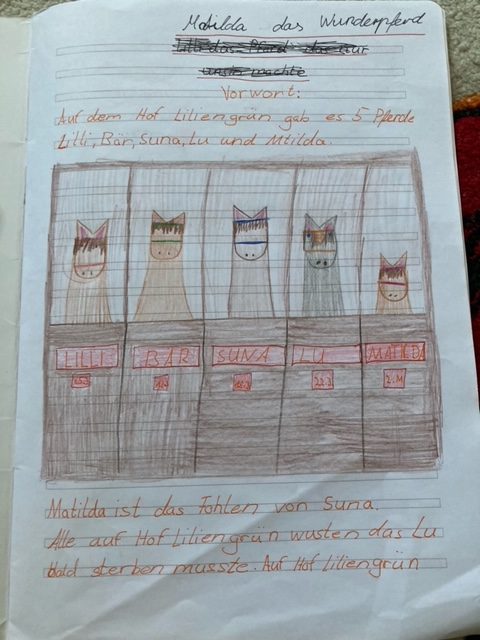 Matilda das Wunderpferd
Vorwort:
Auf dem Hof Liliengrün gab es 5 Pferde
Lilli, Bär, Suna, Lu und Mtilda.
LILLI BÄR SUNA LU MATILDA
22.J 2.M
Matilda ist das Fohlen von Suna.
Alle auf Hof Liliengrün wusten das Lu
bald sterben musste. Auf Hof liliengrün